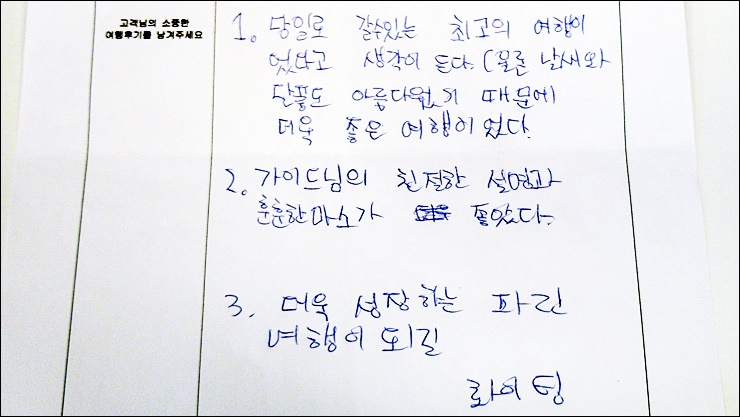 고객님의 소중한
여행후기를 남겨주세요
1. 당일로 갈수있는 최고의 여행이
었다고 생각이 든다. (물론 날씨와
단풍도 아름다웠기 때문에
더욱 좋은 여행이었다.
2. 가이드님의 친절한 설명과
훈훈한 미소가 좋았다.
3. 더욱 성장하는 파란
여행이 되길
화이팅